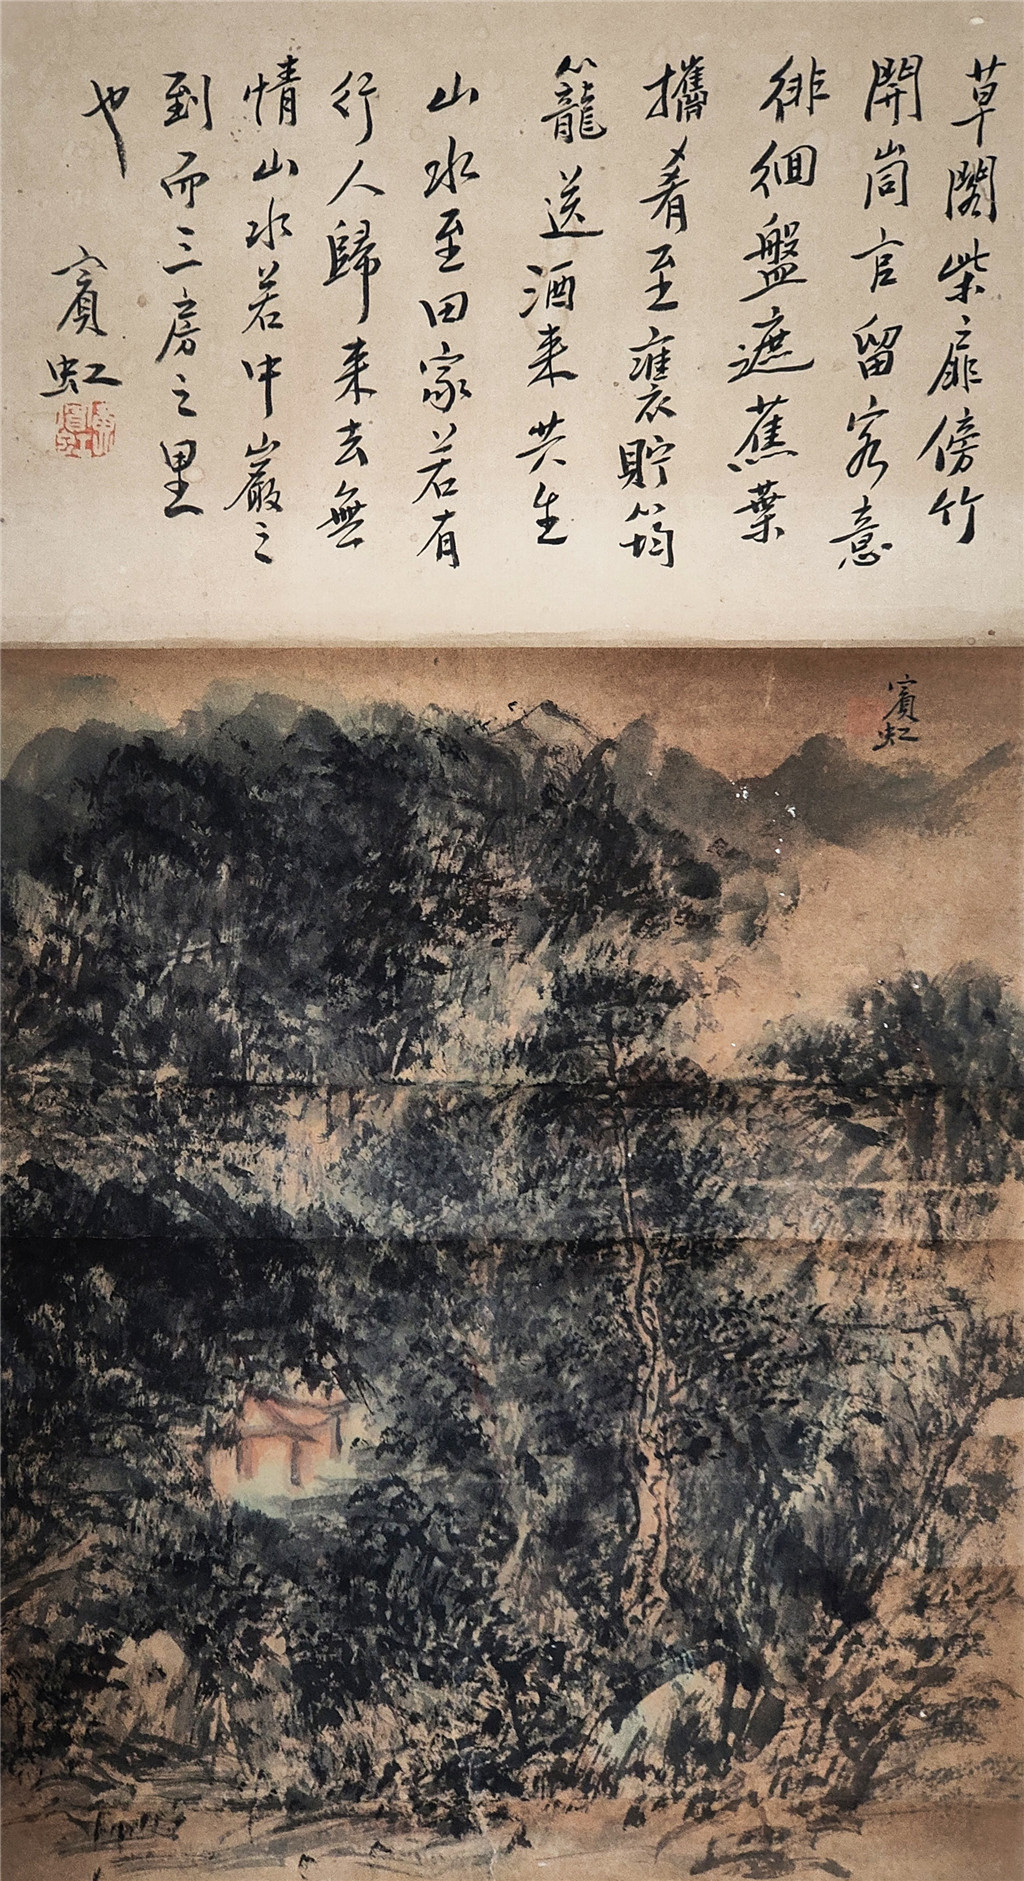 草閣柴扉傍竹
開尚官留客意
徘徊盤遮蕉葉
攜肴至甕裹貯筠
籠送酒来共生
山水至田家若有
行人歸来去無
情山水若中巖之
到而三房之里
也
賓虹
賓虹